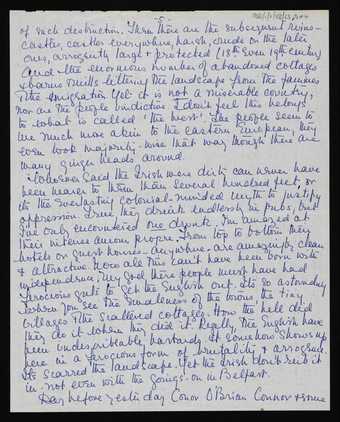 of such destruction. Then there are the subsequent ruins -
castles, castles everywhere, harsh, crude on the later
ones, arrogantly large & protected (18th even 19th century)
And the enormous number of abandoned cottages
& barns & mills littering the landscape from the famines
& the emigration. Yet it is not a miserable country,
nor are the people vindictive. I don't feel this belongs
to what is called 'the west'. The people seem to
be much more akin to the eastern European, they
even look majority-wise that way though there are
many ginger heads around.
Whosoever said the Irish were dirty can never have
been nearer to them than several hundred feet, or
its the everlasting colonial-minded myth to justify
oppression. True they drink endlessly in pubs, but
I've only encountered one drunk. I'm amazed at
their intense amour propre. From top to bottom they
hotels or guest houses - anywhere - are amazingly clean
& attractive. Now all this can't have been born with
independence. My God these people must have had
ferocious guts to get the English out. Its so astounding
when you see the smallness of the towns the tiny
villages & the scattered cottages. How the hell did
they do it when they did it. Really, the English have
been indescribable bastards. It somehow shows up
here in a ferocious form of brutality & arrogance.
Its scarred the landscape. Yet the Irish don't rub it
in - not even with the goings-on in Belfast.
Day before yesterday Conor O'Brian Connor & some